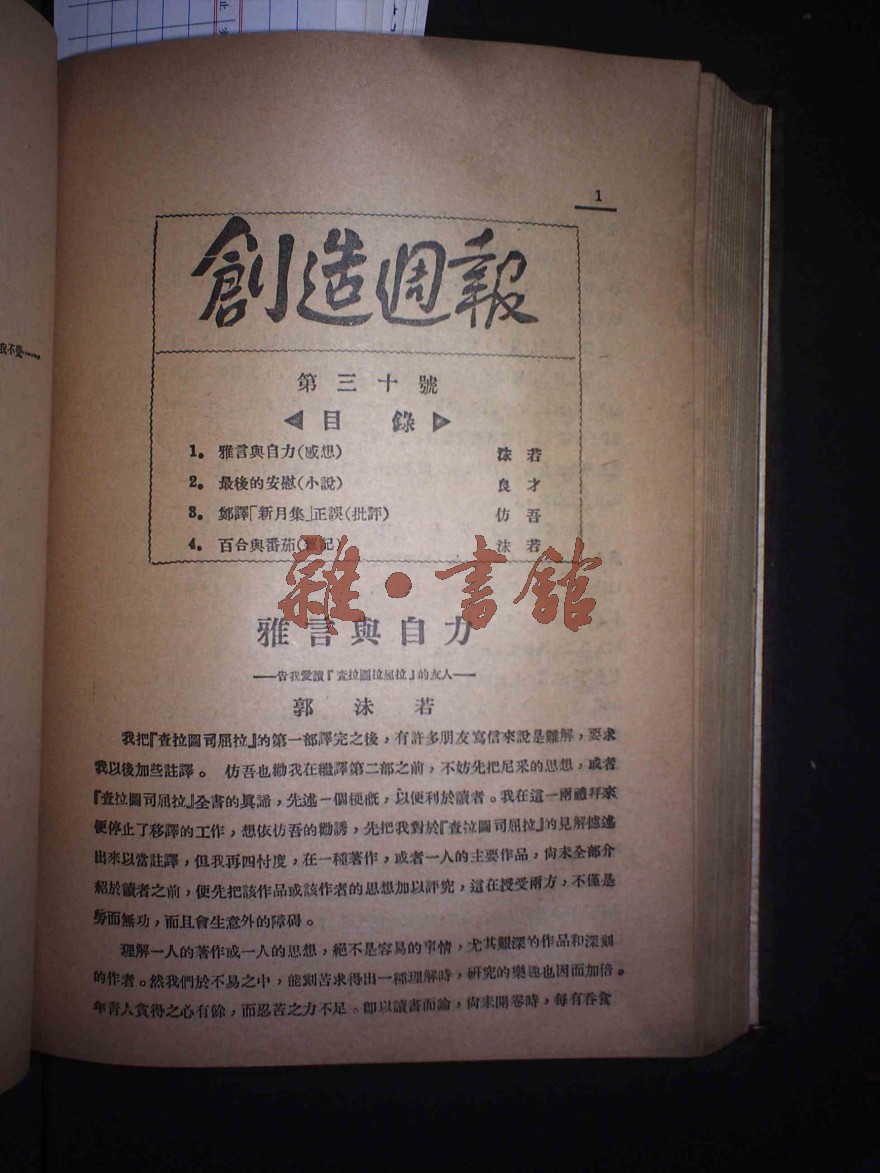 1
創造週報
第三十號
目錄
1。 雅言與自力(感想) 沫若
2。 最後的安慰(小說) 良才
3。 鄭譯「新月集」正誤(批評) 仿吾
4。 百合與番茄(雜記) 沫若
雜·書館
雅言與自力
——告我愛讀『查拉圖拉屈拉』的友人——
郭沫若
我把『查拉圖司屈拉』的第一部譯完之後,有許多朋友寫信來說是難解,要求
我以後加些註譯。 仿吾也勸我在繼譯第二部之前,不妨先把尼采的思想,或者
『查拉圖司屈拉』全書的眞諦,先述一個梗槪,以便利於讀者。我在這一兩禮拜來
便停止了移譯的工作,想依仿吾的勸誘,先把我對於『查拉圖司屈拉』的見解摅述
出來以當註譯,但我再四忖度,在一種著作,或者一人的主要作品,尙未全部介
紹於讀者之前,便先把該作品或該作者的思想加以評究,這在授受兩方,不僅是
勞而無功,而且會生意外的障碍。
理解一人的著作或一人的思想,絕不是容易的事情,尤其艱深的作品和深刻
的作者。然我們於不易之中,能刻苦求得出一種理解時,硏究的樂趣也因而加倍。
年靑人貪得之心有餘,而忍苦之力不足。卽以讀書而論,尙未開卷時,每有吞食
我不覺……